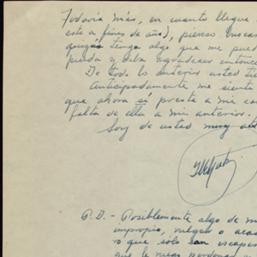 Todavía más, en cuanto llegue
este a fines de año), pienso buscar
quizá tenga algo que me pued
pueda y deba agradecer
De todo lo anterior usted
Anticipadamente me siento
que ahora sí preste a mi ca
falta de ella a mi anterior.
Soy de usted muy
P.D.- Posiblemente algo de mi
impropio, vulgar o acas
o que solo son escapes
que le ruego perdonar